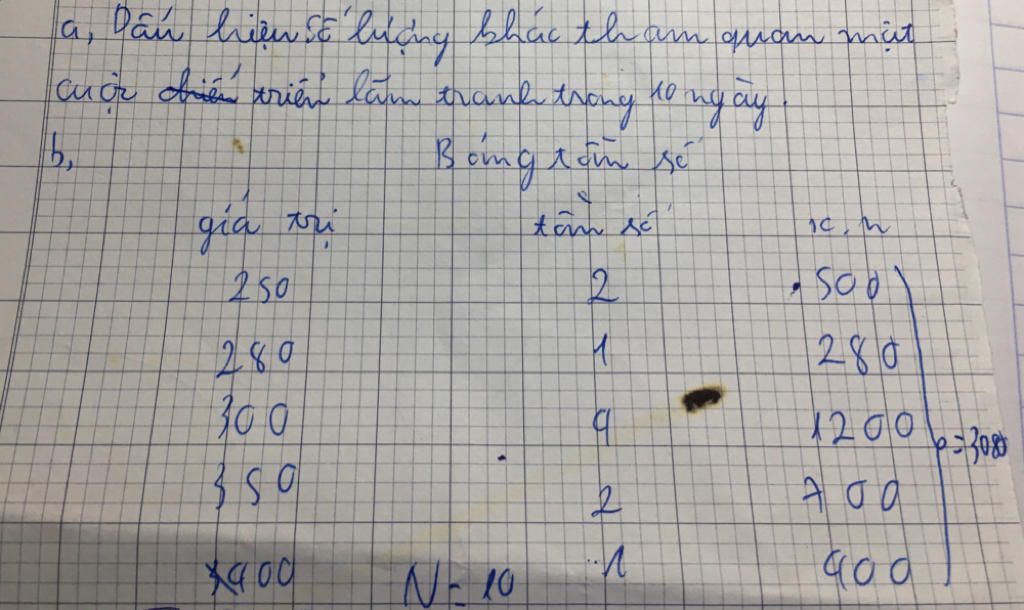 a, Dấu hiện số lượng khác tham quan một
cuộc triển lãm tranh trong 10 ngày.
b, Bảng tần số
giá trị tần số x.n
250 2 500
280 1 280
300 4 1200
350 2 700
400 N=10 1 400
=3080